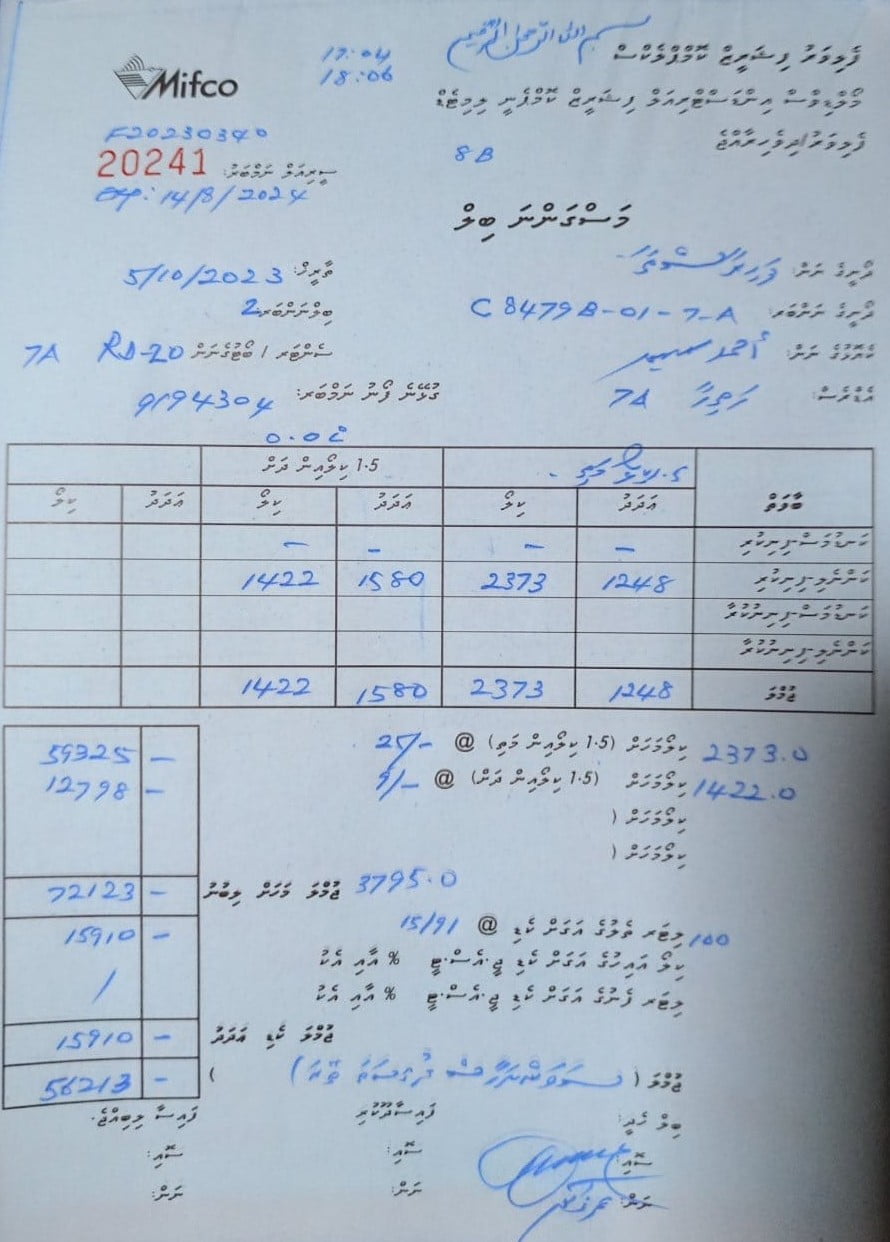 بسم الله الرحمن الرحيم
17:04
18:06
ފެލިވަރު ފިޝަރީޒް ކޮމްޕްލެކްސް
Mifco
މޯލްޑިވްސް އިންޑަސްޓްރިއަލް ފިޝަރީޒް ކޮމްޕެނީ ލިމިޓެޑް
F20230340
ފެލިވަރު/ދިވެހިރާއްޖެ
8B
ސީރިއަލް ނަމްބަރު: 20241
exp: 14/8/2024
މަސްގަންނަ ބިލް
ދޯނީގެ ނަން:
ތާރީޚް: 5/10/2023
ދޯނީގެ ނަންބަރ: C8479B-01-7-A
ބިލްނަންބަރ 2
ކެޔޮޅުގެ ނަން:
ސެންޓަރ / ބޯޓުގެނަން RD-20 7A
އެޑްރެސް: 7A
ގުޅޭނެ ފޯނު ނަމްބަރ: 9194304
1.5 ކިލޯއިން ދަށް
ބާވަތް އަދަދު ކިލޯ އަދަދު ކިލޯ އަދަދު ކިލޯ
ކަނޑުމަސް-ފިނިކުރި – – – –
ކަންނެލި-ފިނިކުރި 1248 2373 1580 1422
ކަނޑުމަސް-ފިނިނުކުރާ
ކަންނެލި-ފިނިނުކުރާ
ޖުމްލަ 1248 2373 1580 1422
2373.0 ކިލޯމަހަށް (1.5 ކިލޯއިން މަތި) @ 25/- 59325 –
1422.0 ކިލޯމަހަށް (1.5 ކިލޯއިން ދަށް) @ 9/- 12798 –
ކިލޯމަހަށް (
ކިލޯމަހަށް (
3795.0 ޖުމްލަ މަހަށް ލިބުނު 72123 –
100 ލިޓަރ ތެލުގެ އަގަށް ކެޑި @ 15/91 15910 –
ކިލޯ އައިހުގެ އަގަށް ކެޑި ޖީ.އެސް.ޓީ % އާއި އެކު
ލިޓަރ ފެނުގެ އަގަށް ކެޑި ޖީ.އެސް.ޓީ % އާއި އެކު
ޖުމްލަ ކެޑި އަދަދު 15910 –
ޖުމްލަ ( ) 56213 –
ބިލް ހެދީ: ފައިސާދޫކުރި ފައިސާ ލިބިއްޖެ.
ސޮއި: ސޮއި: ސޮއި:
ނަން: ނަން: ނަން: